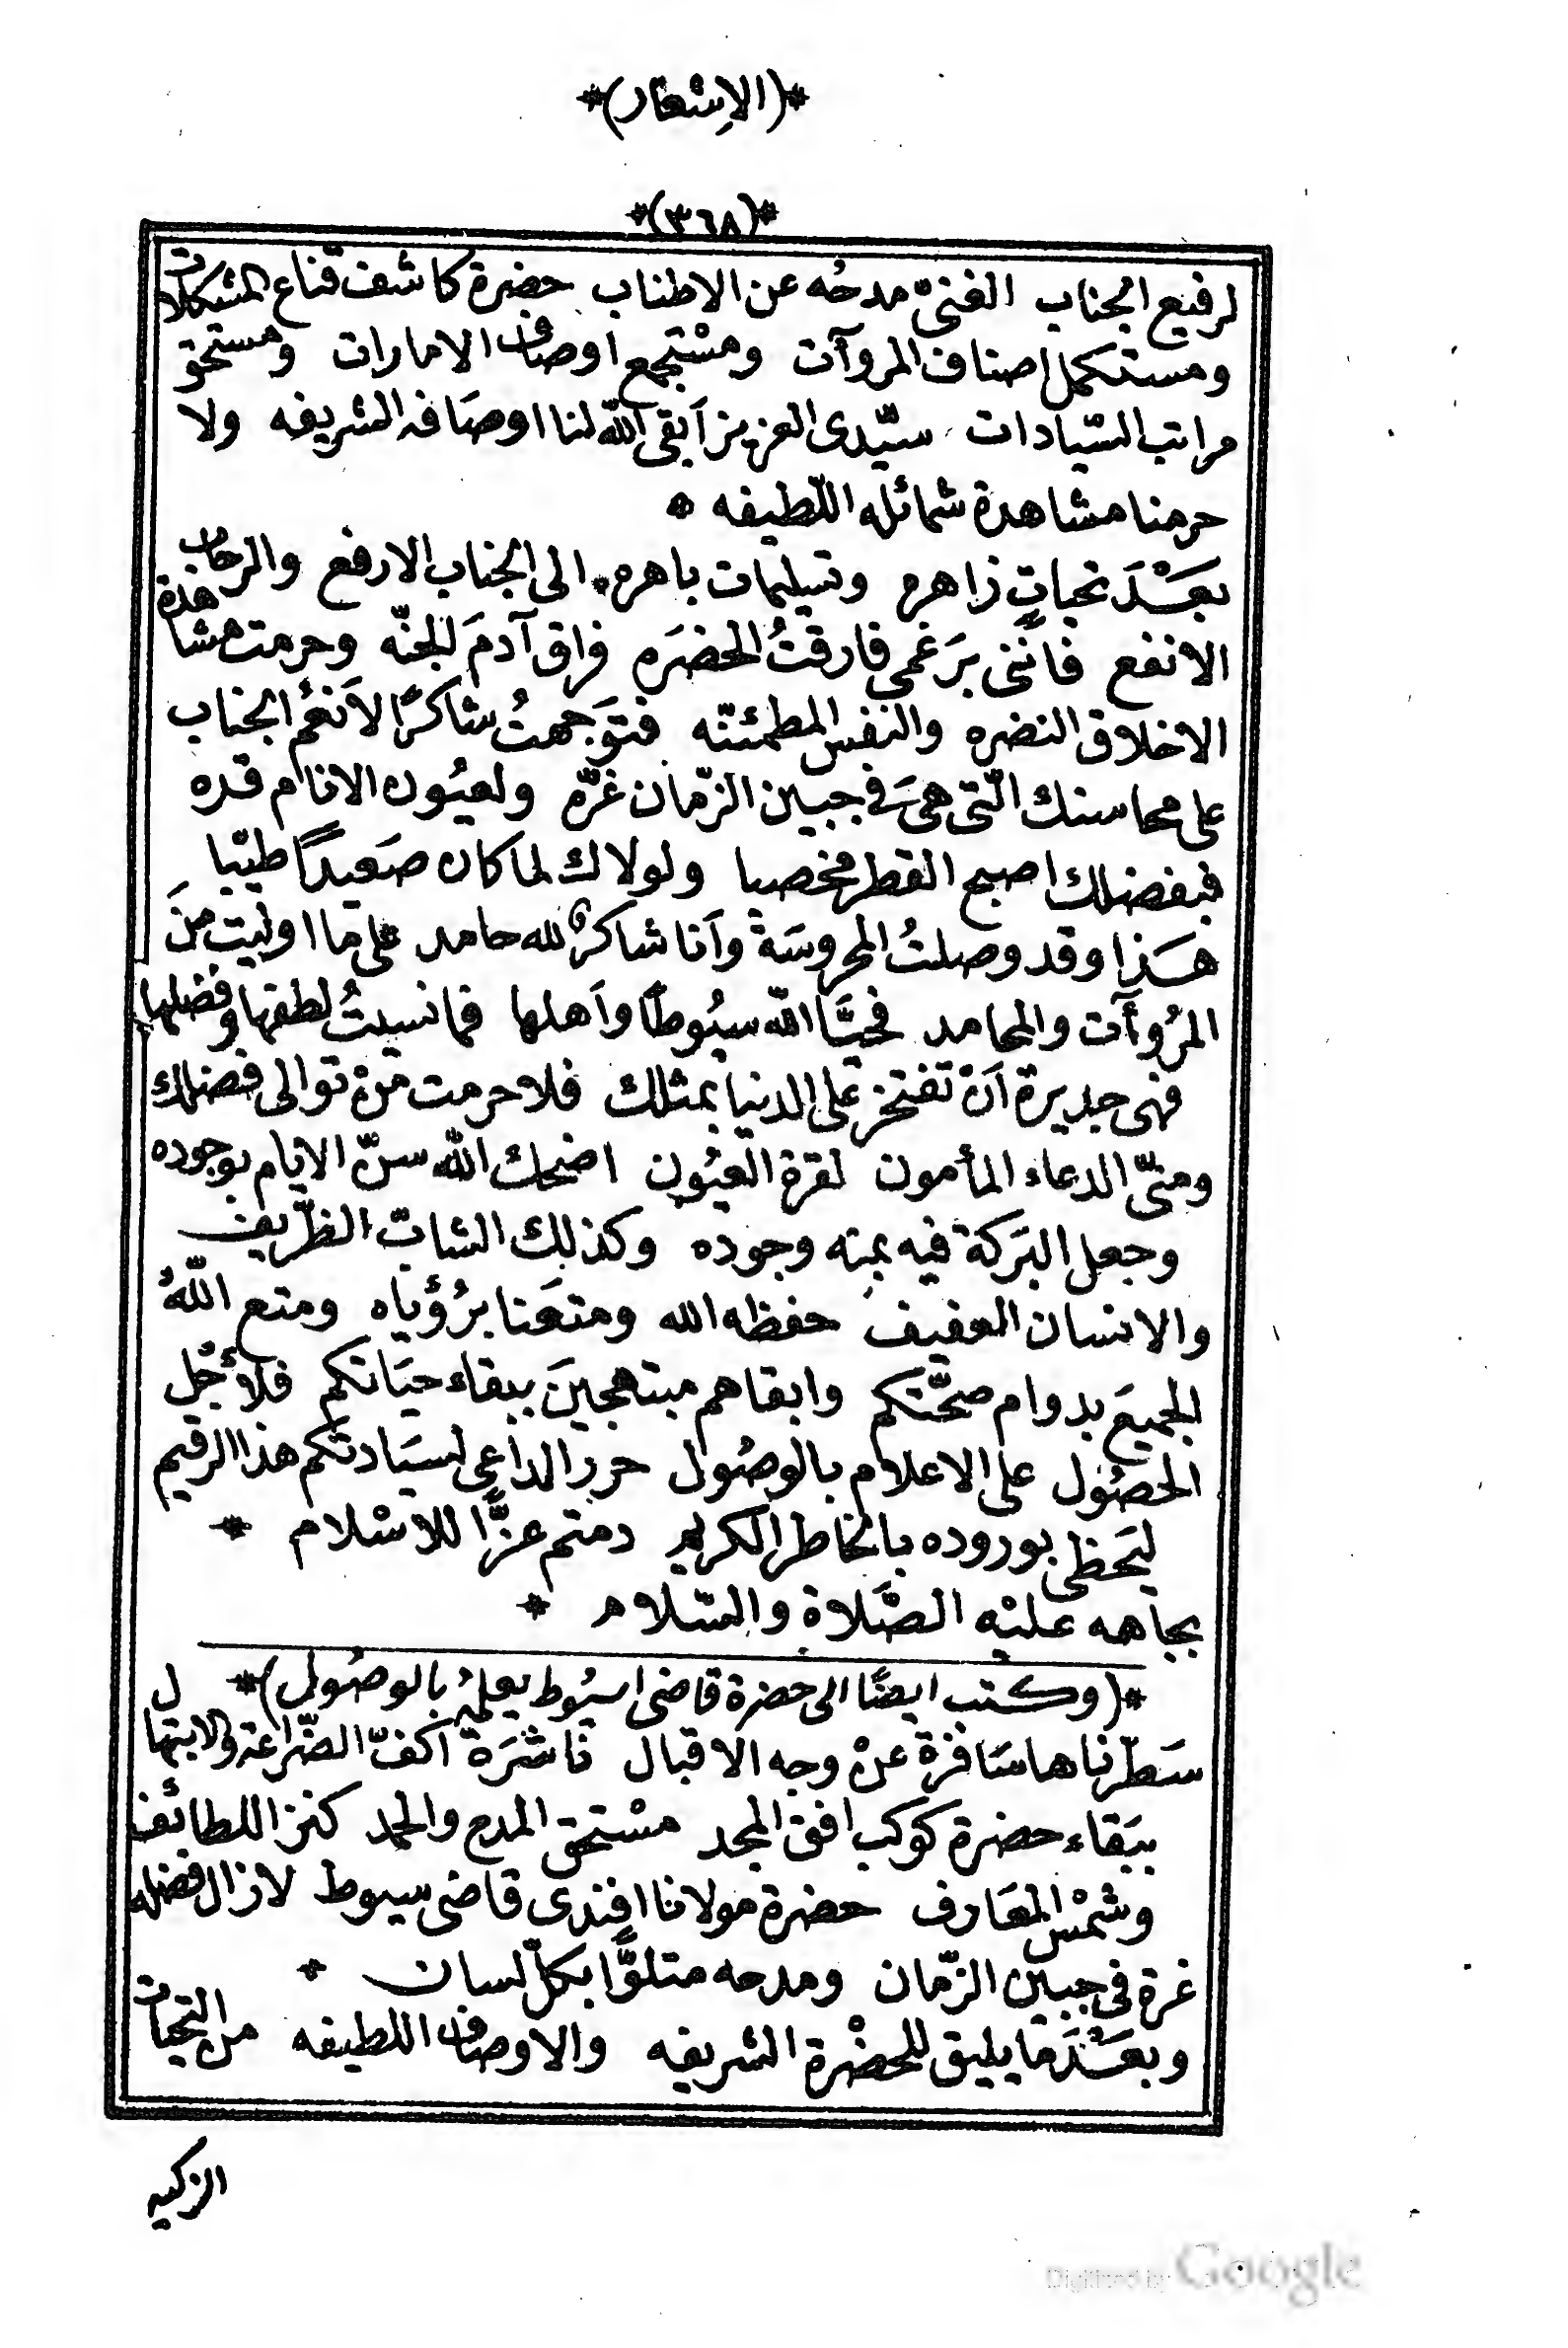 *(الاشعار)*
*(٣٦٨)*
لرفيع الجناب الغنىّ مدحُه عن الاطناب حضرة كاشف قناع المشكلات
ومستكمل اصناف المروآت ومسْتجمع اوصاف الامارات ومستحق
مراتب السّيادات سيّدى العزيز اَبقى اللّه لنا اوصَافه الشريفه ولا
حرمنا مشاهدة شمائله اللّطيفه *
بعَــْدَ تحياتٍ زاهره وتسليمات باهره * الى الجناب الارفع والرحاب
الانفع فانّنى برَغمى فارقتُ الحضرَه فراق آدمَ للجنّه وحرمت مشاهدة
الاخلاق النضره والنفس المطمئنّه فتوَجهتُ شاكرًا لاَنعُم الجناب
على محاسنك الّتى هىَ فى جبين الزّمان غرّه ولعيُون الانام قره
فبفضلك اصبح القطر مخصبا ولولاك لما كان صَعيداً طيّبا
هـَـذا وقد وصلتُ المحروسَة واَنا شاكرٌ لله حامد على ما اوليت منَ
المرُوآت والمحامد فحيَّا اللّه سيُوطًا واَهلها فما نسيتُ لطفها وفضلها
فهى جديرة اَنْ تفتخر على الدنيا بمثلك فلا حرمت منْ توالى فضلك
ومنّى الدعاء المأمون لقرة العيُون اضحك اللّه سنّ الايام بوجوده
وجعل البَركة فيه بمنِه وجوده وكذلك الشابّ الظّريف
والانسان العفيف حفظه الله ومتعَنا برُؤياه ومتع اللّهُ
الجميعَ بدوام صحّتكم وابقاهم مبتهجينَ ببقاء حيَاتكم فلأجْل
الحصُول على الاعلام بالوصُول حرر الداعى لسيَادتكم هذا الرقيم
ليَحظى بوروده بالخاطر الكريم دمتم عزًّا للاسْلام *
بجاهه عليْه الصَّلاة والسّلام *
*(وكتب ايضًا الى حضرة قاضى اسيُوط يعلمُه بالوصُول)*
سَطّرناها سَافرة عنْ وجه الاقبال ناشرَة اكفّ الضّراعة والابتهال
ببَقاء حضرة كوكب افق المجد مسْتحق المدح والحمد كنز اللطائف
وشمْس المعَارف حضرة مولانا افندى قاضى سيوط لازال فضله
غرة فى جبين الزّمان ومدحه متلوًّا بكلّ لسان *
وبعَــْدَ ما يليق للحضْرة الشريفه والاوصاف اللطيفه من التحيات
الزكيه
Digitized by Google